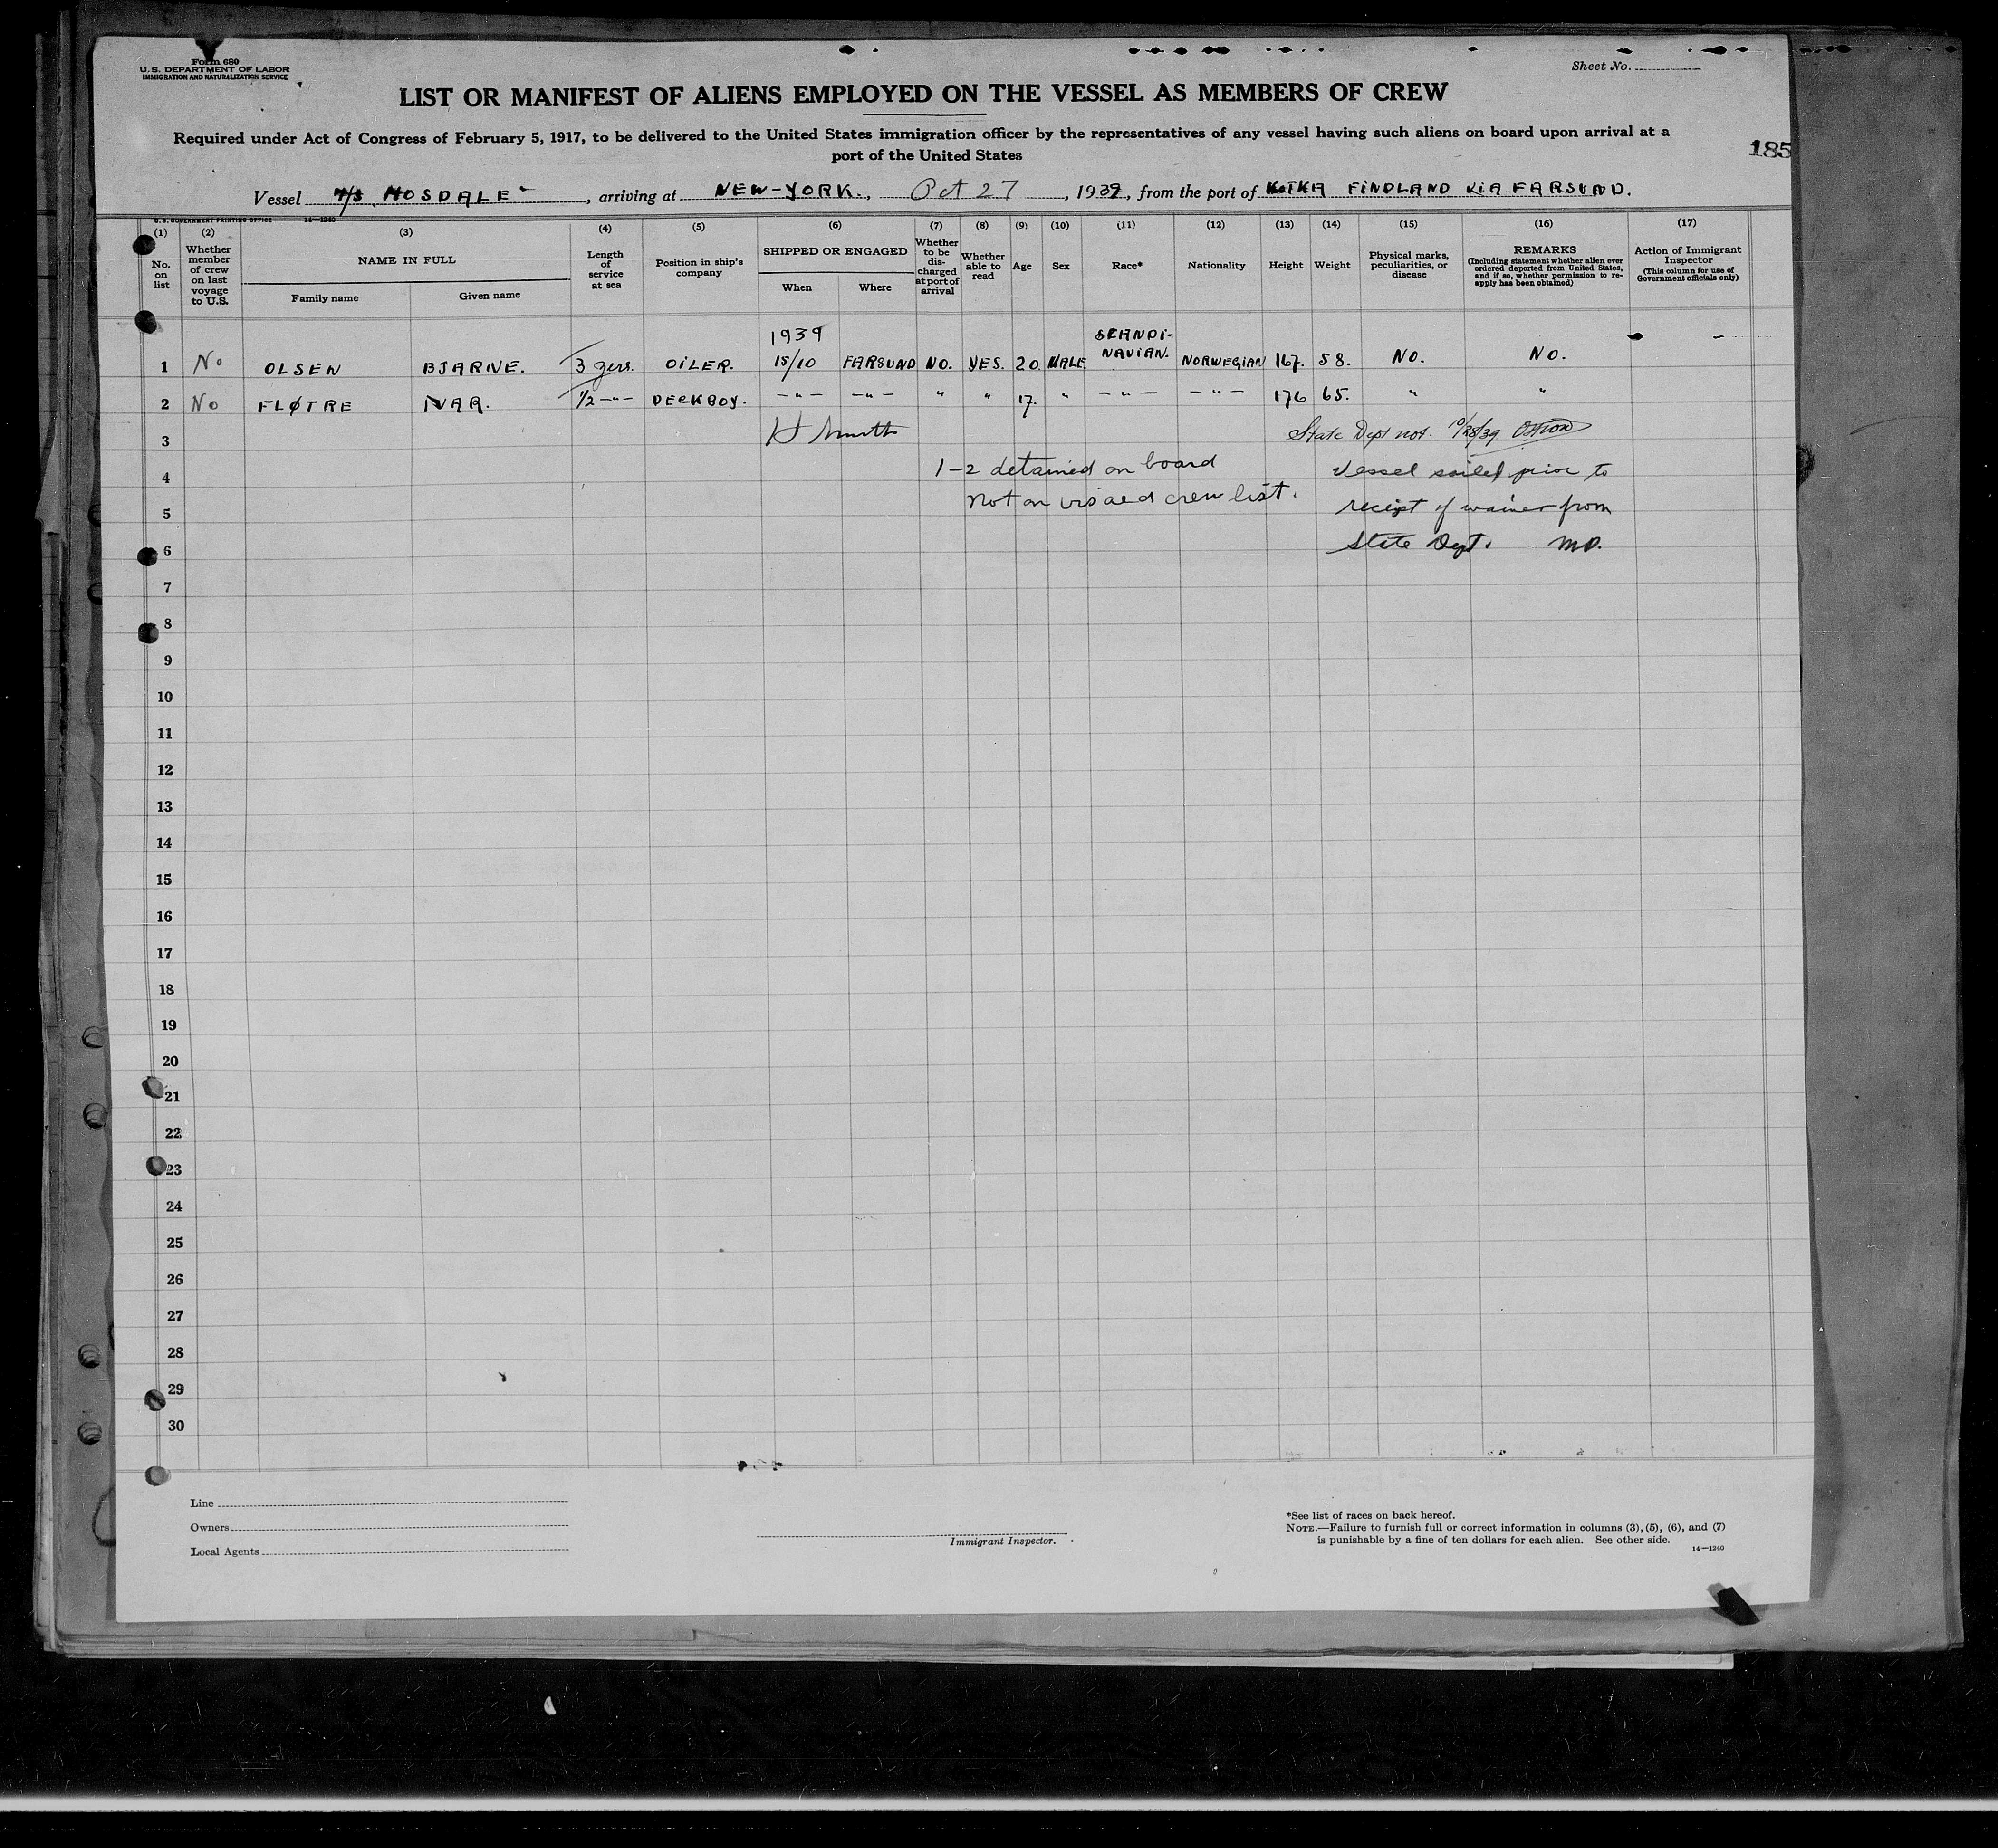 Form 680
U. S. DEPARTMENT OF LABOR
IMMIGRATION AND NATURALIZATION SERVICE
Sheet No.
LIST OR MANIFEST OF ALIENS EMPLOYED ON THE VESSEL AS MEMBERS OF CREW
Required under Act of Congress of February 5, 1917, to be delivered to the United States immigration officer by the representatives of any vessel having such aliens on board upon arrival at a
port of the United States
185
Vessel M/S MOSDALE, arriving at NEW-YORK., Oct 27, 1939, from the port of KOTKA FINDLAND VIA FARSUND.
U. S. GOVERNMENT PRINTING OFFICE 14—1240
(1) No. on list
(2) Whether member of crew on last voyage to U.S.
(3) NAME IN FULL Family name Given name
(4) Length of service at sea
(5) Position in ship's company
(6) SHIPPED OR ENGAGED When Where
(7) Whether to be dis-charged at port of arrival
(8) Whether able to read
(9) Age
(10) Sex
(11) Race*
(12) Nationality
(13) Height
(14) Weight
(15) Physical marks, peculiarities, or disease
(16) REMARKS (Including statement whether alien ever ordered deported from United States, and if so, whether permission to re-apply has been obtained)
(17) Action of Immigrant Inspector (This column for use of Government officials only)
1939 SCANDI-
1 No OLSEN BJARNE. 3 yers. OILER. 15/10 FARSUND NO. YES. 20. MALE. NAVIAN. NORWEGIAN 167. 58. NO. NO.
2 No FLØTRE IVAR. 1/2 —"— DECKBOY. —"— —"— " " 17. " —"— —"— 176 65. " "
3 State Dept not. 10/28/39
4 1-2 detained on board Vessel sailed prior to
5 Not on visaed crew list. receipt of waiver from
6 State Dept. MD.
7
8
9
10
11
12
13
14
15
16
17
18
19
20
21
22
23
24
25
26
27
28
29
30
Line
Owners
Local Agents
Immigrant Inspector.
*See list of races on back hereof.
NOTE.—Failure to furnish full or correct information in columns (3), (5), (6), and (7)
is punishable by a fine of ten dollars for each alien. See other side.
14—1240